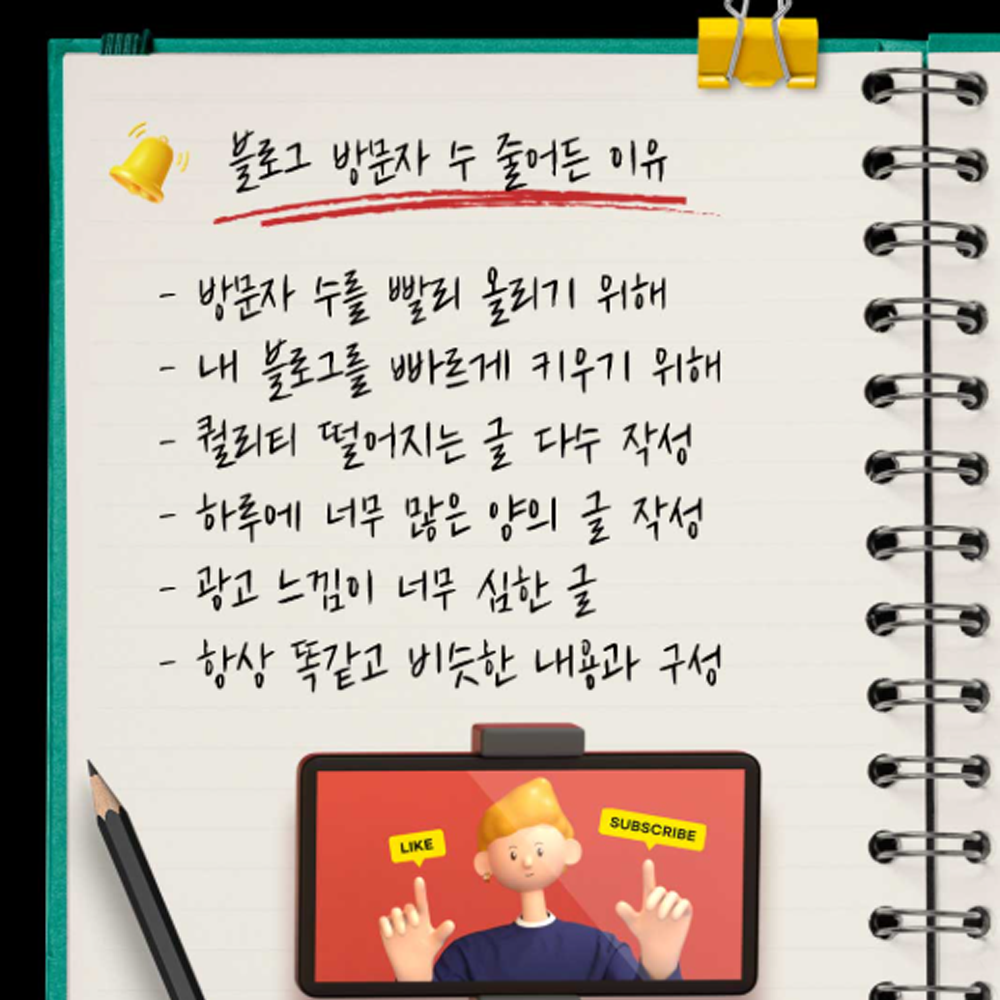 블로그 방문자 수 줄어든 이유
- 방문자 수를 빨리 올리기 위해
- 내 블로그를 빠르게 키우기 위해
- 퀄리티 떨어지는 글 다수 작성
- 하루에 너무 많은 양의 글 작성
- 광고 느낌이 너무 심한 글
- 항상 똑같고 비슷한 내용과 구성
LIKE
SUBSCRIBE